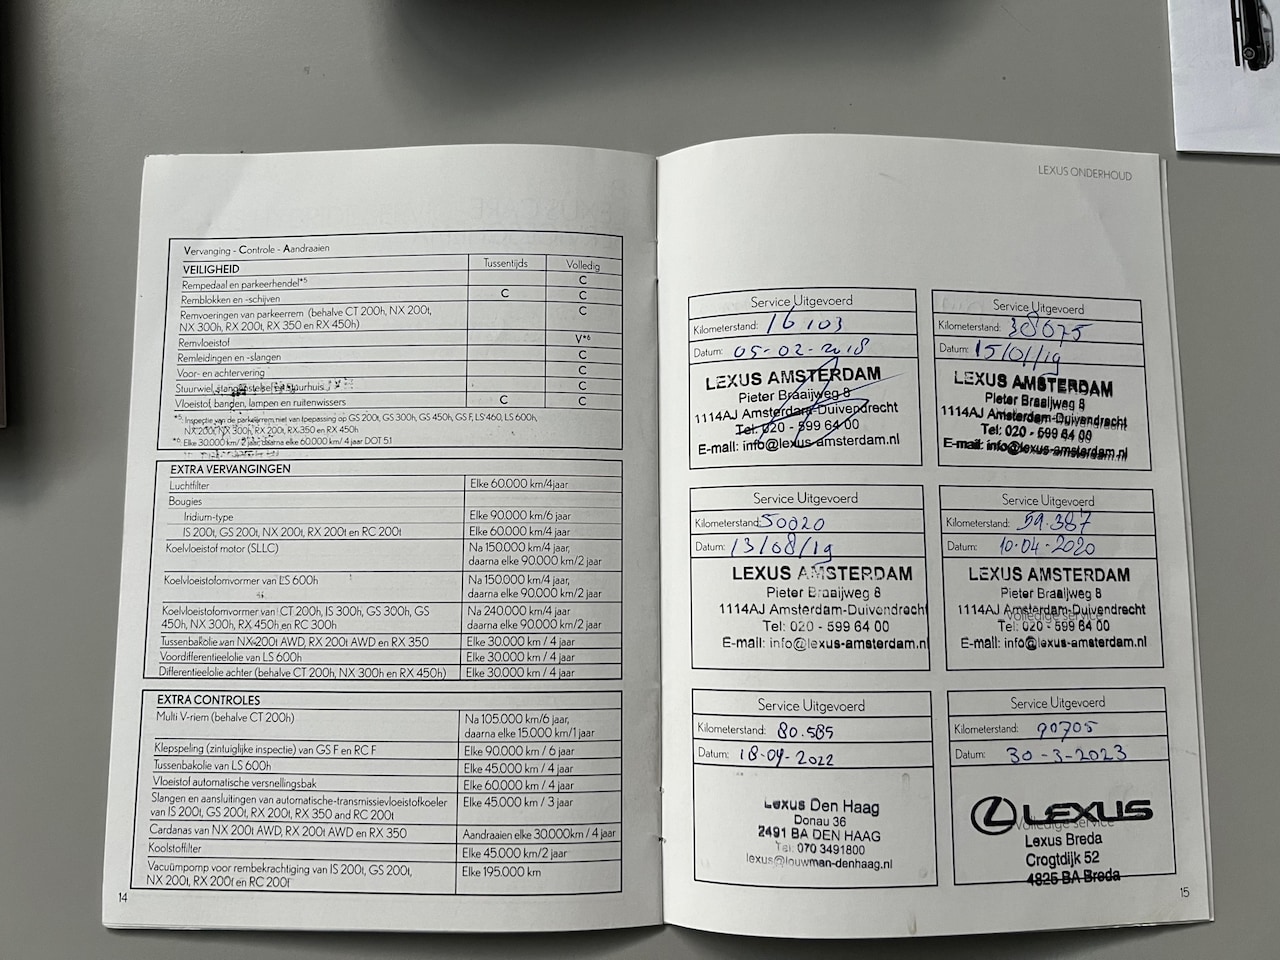 Vervanging - Controle - Aandraaien
VEILIGHEID Tussentijds Volledig
Rempedaal en parkeerhendel*5 C
Remblokken en -schijven C C
Remvoeringen van parkeerrem (behalve CT 200h, NX 200t, C
NX 300h, RX 200t, RX 350 en RX 450h)
Remvloeistof V*6
Remleidingen en -slangen C
Voor- en achtervering C
Stuurwiel, stangenstelsel en stuurhuis C
Vloeistof, banden, lampen en ruitenwissers C C
*5: Inspectie van de parkeerrem niet van toepassing op GS 200t, GS 300h, GS 450h, GS F, LS 460, LS 600h,
NX 200t, NX 300h, RX 200t, RX 350 en RX 450h
*6: Elke 30.000 km/ 2 jaar, daarna elke 60.000 km/ 4 jaar DOT 5.1
EXTRA VERVANGINGEN
Luchtfilter Elke 60.000 km/4jaar
Bougies
Iridium-type Elke 90.000 km/6 jaar
IS 200t, GS 200t, NX 200t, RX 200t en RC 200t Elke 60.000 km/4 jaar
Koelvloeistof motor (SLLC) Na 150.000 km/4 jaar,
daarna elke 90.000 km/2 jaar
Koelvloeistofomvormer van LS 600h Na 150.000 km/4 jaar,
daarna elke 90.000 km/2 jaar
Koelvloeistofomvormer van CT 200h, IS 300h, GS 300h, GS Na 240.000 km/4 jaar
450h, NX 300h, RX 450h en RC 300h daarna elke 90.000 km/2 jaar
Tussenbakolie van NX 200t AWD, RX 200t AWD en RX 350 Elke 30.000 km / 4 jaar
Voordifferentieelolie van LS 600h Elke 30.000 km / 4 jaar
Differentieelolie achter (behalve CT 200h, NX 300h en RX 450h) Elke 30.000 km / 4 jaar
EXTRA CONTROLES
Multi V-riem (behalve CT 200h) Na 105.000 km/6 jaar,
daarna elke 15.000 km/1 jaar
Klepspeling (zintuiglijke inspectie) van GS F en RC F Elke 90.000 km / 6 jaar
Tussenbakolie van LS 600h Elke 45.000 km / 4 jaar
Vloeistof automatische versnellingsbak Elke 60.000 km / 4 jaar
Slangen en aansluitingen van automatische-transmissievloeistofkoeler Elke 45.000 km / 3 jaar
van IS 200t, GS 200t, RX 200t, RX 350 and RC 200t
Cardanas van NX 200t AWD, RX 200t AWD en RX 350 Aandraaien elke 30.000km / 4 jaar
Koolstoffilter Elke 45.000 km/2 jaar
Vacuümpomp voor rembekrachtiging van IS 200t, GS 200t, Elke 195.000 km
NX 200t, RX 200t en RC 200t
14
LEXUS ONDERHOUD
Service Uitgevoerd
Kilometerstand: 16 103
Datum: 05-02-2018
LEXUS AMSTERDAM
Pieter Braaijweg 8
1114AJ Amsterdam-Duivendrecht
Tel: 020 - 599 64 00
E-mail: info@lexus-amsterdam.nl
Service Uitgevoerd
Kilometerstand: 38675
Datum: 15/01/19
LEXUS AMSTERDAM
Pieter Braaijweg 8
1114AJ Amsterdam-Duivendrecht
Tel: 020 - 599 64 00
E-mail: info@lexus-amsterdam.nl
Service Uitgevoerd
Kilometerstand: 50020
Datum: 13/08/19
LEXUS AMSTERDAM
Pieter Braaijweg 8
1114AJ Amsterdam-Duivendrecht
Tel: 020 - 599 64 00
E-mail: info@lexus-amsterdam.nl
Service Uitgevoerd
Kilometerstand: 59.387
Datum: 10-04-2020
LEXUS AMSTERDAM
Pieter Braaijweg 8
1114AJ Amsterdam-Duivendrecht
Volledige service
Tel: 020 - 599 64 00
E-mail: info@lexus-amsterdam.nl
Service Uitgevoerd
Kilometerstand: 80.585
Datum: 18-04-2022
Lexus Den Haag
Donau 36
2491 BA DEN HAAG
Tel: 070 3491800
lexus@louwman-denhaag.nl
Service Uitgevoerd
Kilometerstand: 90705
Datum: 30-3-2023
LEXUS
Volledige service
Lexus Breda
Crogtdijk 52
4825 BA Breda
15